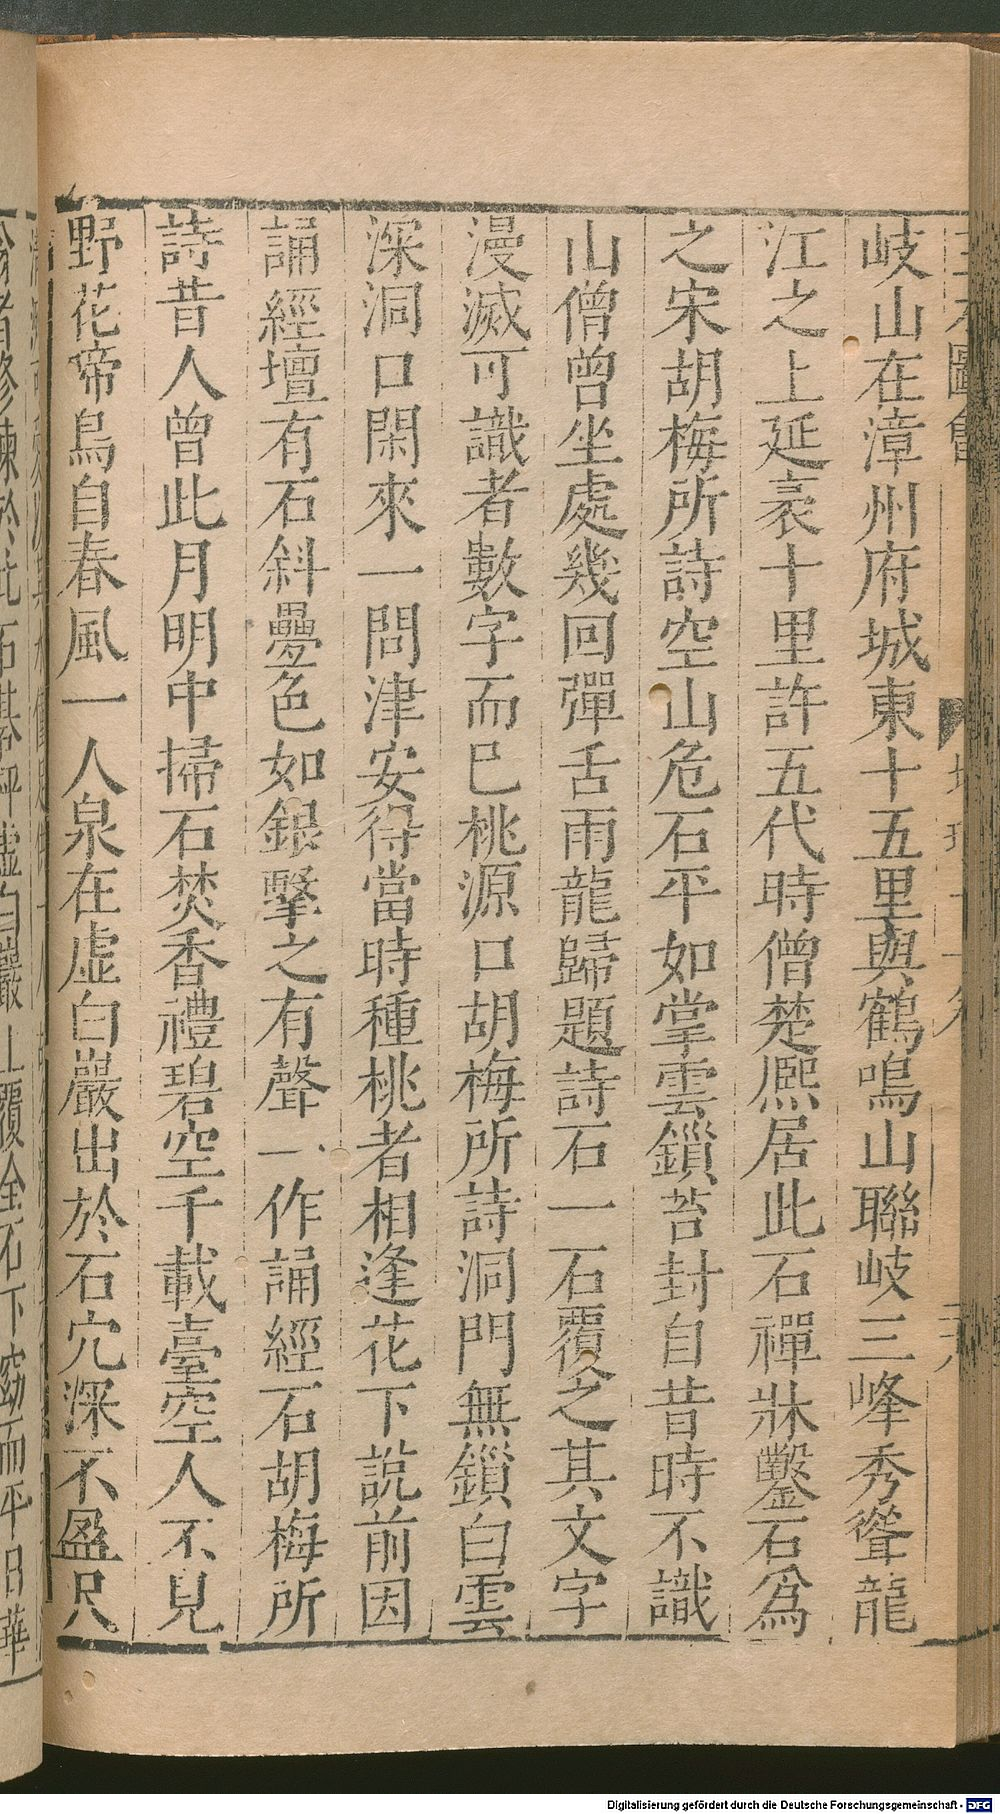 岐山在漳州府城東十五里與鶴鳴山聯岐三峰秀聳龍
江之上延袤十里許五代時僧楚熈居此石禪牀鑿石爲
之宋胡梅所詩空山危石平如掌雲鎖苔封自昔時不識
山僧曾坐處幾回彈舌雨龍歸題詩石一石覆之其文字
漫滅可識者數字而巳桃源口胡梅所詩洞門無鎖白雲
深洞口閑來一問津安得當時種桃者相逢花下説前因
誦經壇有石斜疊色如銀擊之有聲一作誦經石胡梅所
詩昔人曾此月明中掃石焚香禮碧空千載臺空人不見
野花啼鳥自春風一人泉在虛白巖出於石穴深不盈尺
Digitalisierung gefördert durch die Deutsche Forschungsgemeinschaft - DFG